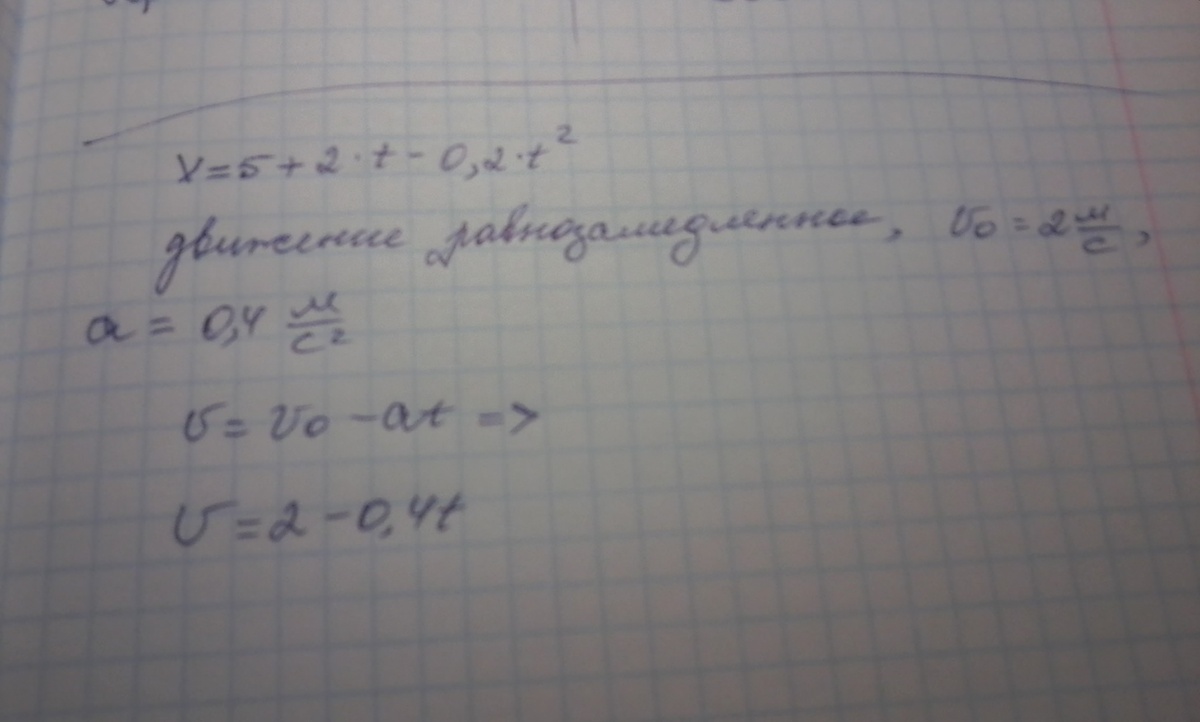 x = 5 + 2 · t - 0,2 · t²
движение равнозамедленное, v₀ = 2 м/с,
a = 0,4 м/с²
v = v₀ - at =>
v = 2 - 0,4t